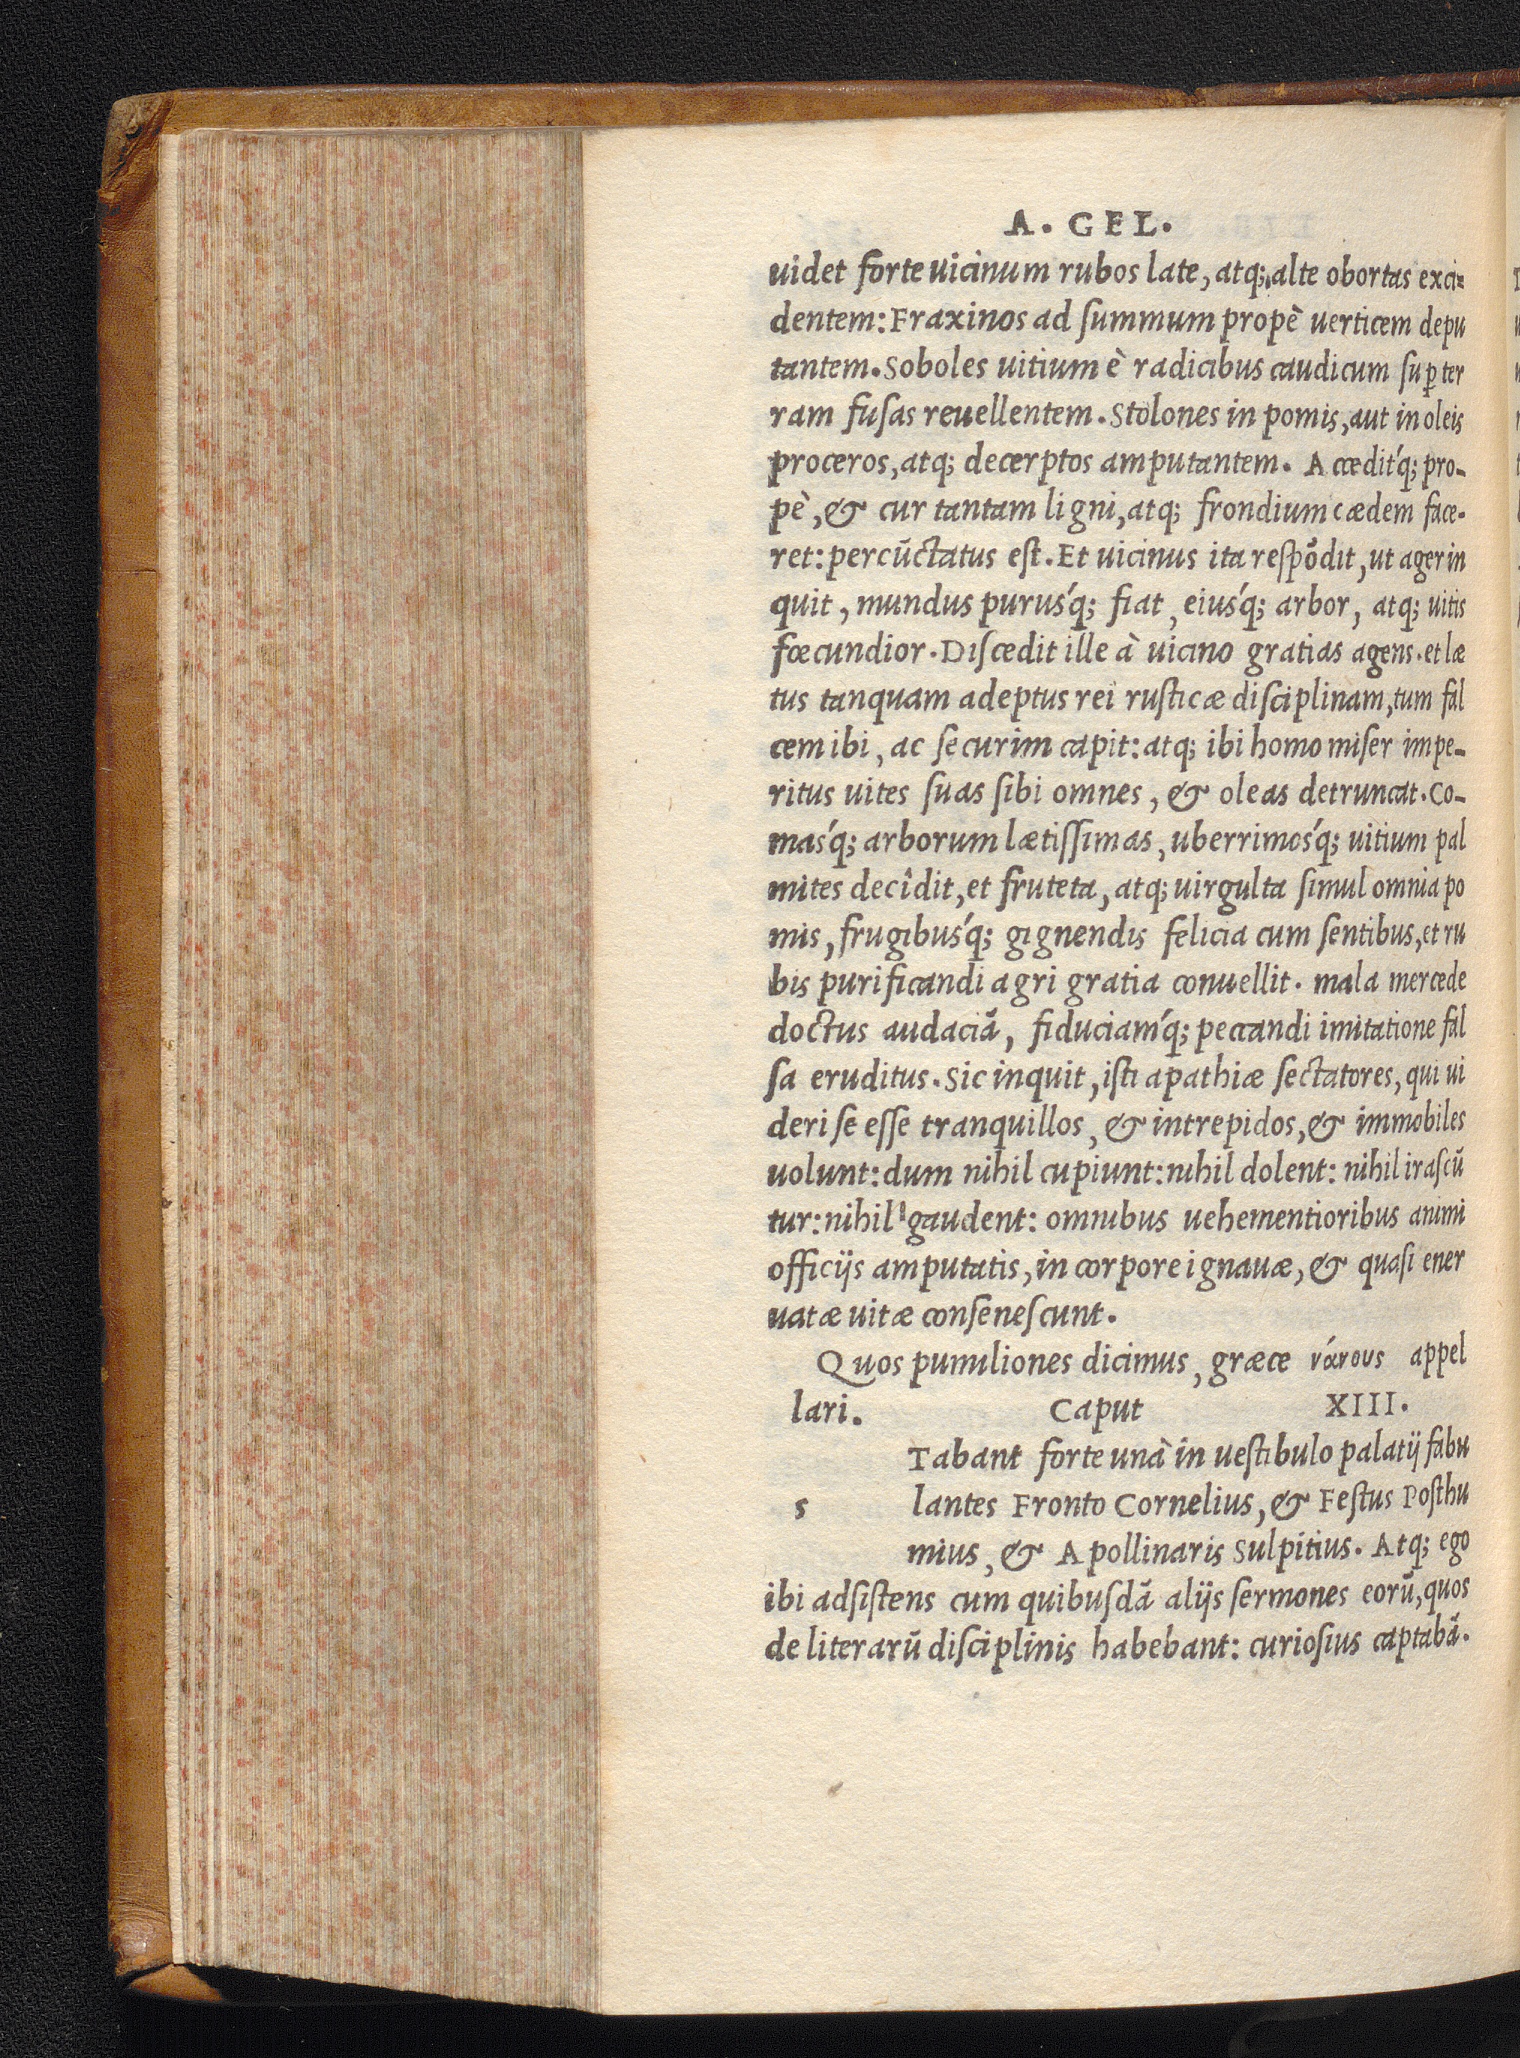 A. GEL.
uidet forte uicinum rubos late, atq; alte obortas exci=
dentem: Fraxinos ad summum propè uerticem depu
tantem. Soboles uitium è radicibus caudicum sup ter
ram fusas reuellentem. Stolones in pomis, aut in oleis
proceros, atq; decerptos amputantem. Acceditq́; pro-
pè, & cur tantam ligni, atq; frondium cædem face-
ret: percūctatus est. Et uicinus ita respōdit, ut ager in
quit, mundus purusq́; fiat, eiusq́; arbor, atq; uitis
fœcundior. Discedit ille à uicino gratias agens. et læ
tus tanquam adeptus rei rusticæ disciplinam, tum fal
cem ibi, ac securim capit: atq; ibi homo miser impe-
ritus uites suas sibi omnes, & oleas detruncat. Co-
masq́; arborum lætissimas, uberrimosq́; uitium pal
mites decîdit, et fruteta, atq; uirgulta simul omnia po
mis, frugibusq́; gignendis felicia cum sentibus, et ru
bis purificandi agri gratia conuellit. mala mercede
doctus audaciā, fiduciamq́; peccandi imitatione fal
sa eruditus. Sic inquit, isti apathiæ sectatores, qui ui
deri se esse tranquillos, & intrepidos, & immobiles
uolunt: dum nihil cupiunt: nihil dolent: nihil irascū
tur: nihil gaudent: omnibus uehementioribus animi
officijs amputatis, in corpore ignauæ, & quasi ener
uatæ uitæ consenescunt.
Quos pumiliones dicimus, græce νάνους appel
lari. Caput XIII.
Tabant forte unà in uestibulo palatij fabu
s lantes Fronto Cornelius, & Festus Posthu
mius, & Apollinaris Sulpitius. Atq; ego
ibi adsistens cum quibusdā alijs sermones eorū, quos
de literarū disciplinis habebant: curiosius captabā.